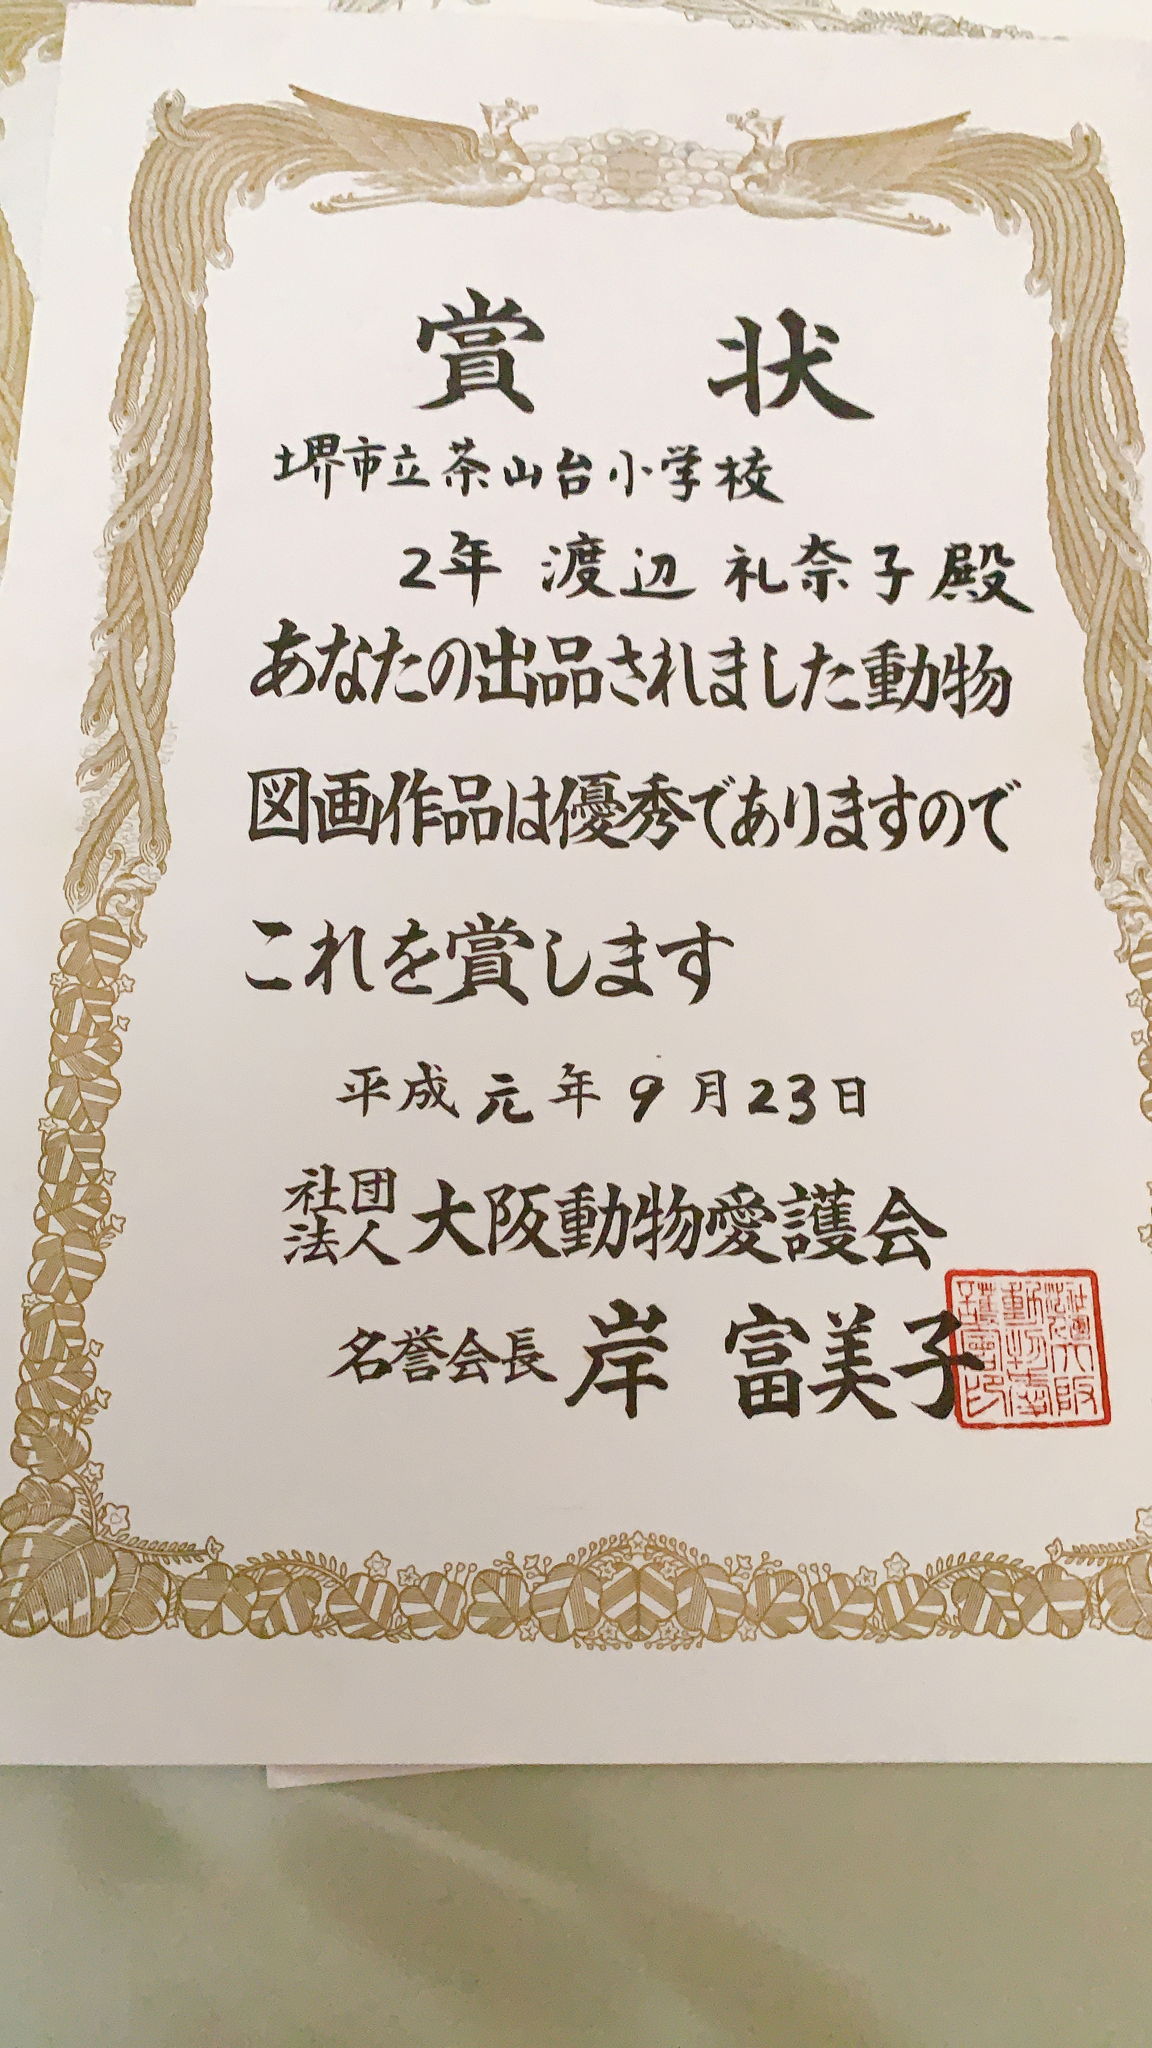 賞状
堺市立茶山台小学校
2年 渡辺 礼奈子殿
あなたの出品されました動物
図画作品は優秀でありますので
これを賞します
平成元年9月23日
社団法人大阪動物愛護会
名誉会長 岸 富美子
社團法人大阪動物愛護會印